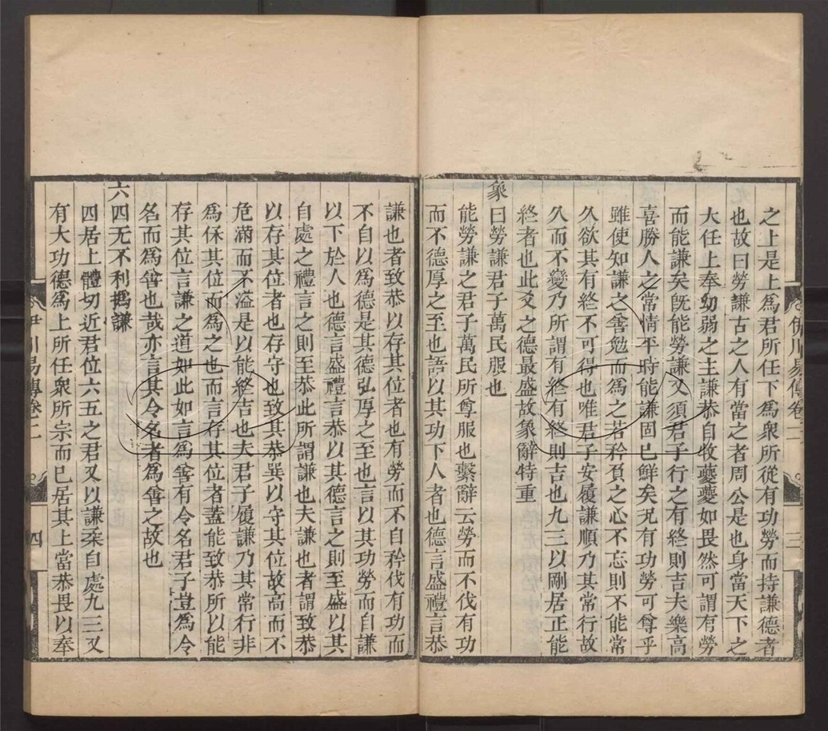 之上是上爲君所任下爲衆所從有功勞而持謙德者
也故曰勞謙古之人有當之者周公是也身當天下之
大任上奉幼弱之主謙恭自牧夔夔如畏然可謂有勞
而能謙矣旣能勞謙又須君子行之有終則吉夫樂高
喜勝人之常情平時能謙固已鮮矣况有功勞可尊乎
雖使知謙之善勉而爲之若矜負之心不忘則不能常
久欲其有終不可得也唯君子安履謙順乃其常行故
久而不變乃所謂有終有終則吉也九三以剛居正能
終者也此爻之德最盛故象辭特重
象曰勞謙君子萬民服也
能勞謙之君子萬民所尊服也繫辭云勞而不伐有功
而不德厚之至也語以其功下人者也德言盛禮言恭
伊川易傳卷二
三
謙也者致恭以存其位者也有勞而不自矜伐有功而
不自以爲德是其德弘厚之至也言以其功勞而自謙
以下於人也德言盛禮言恭以其德言之則至盛以其
自處之禮言之則至恭此所謂謙也夫謙也者謂致恭
以存其位者也存守也致其恭巽以守其位故高而不
危滿而不溢是以能終吉也夫君子履謙乃其常行非
爲保其位而爲之也而言存其位者蓋能致恭所以能
存其位言謙之道如此如言爲善有令名君子豈爲令
名而爲善也哉亦言其令名者爲善之故也
六四无不利撝謙
四居上體切近君位六五之君又以謙柔自處九三又
有大功德爲上所任衆所宗而已居其上當恭畏以奉
伊川易傳卷二
四